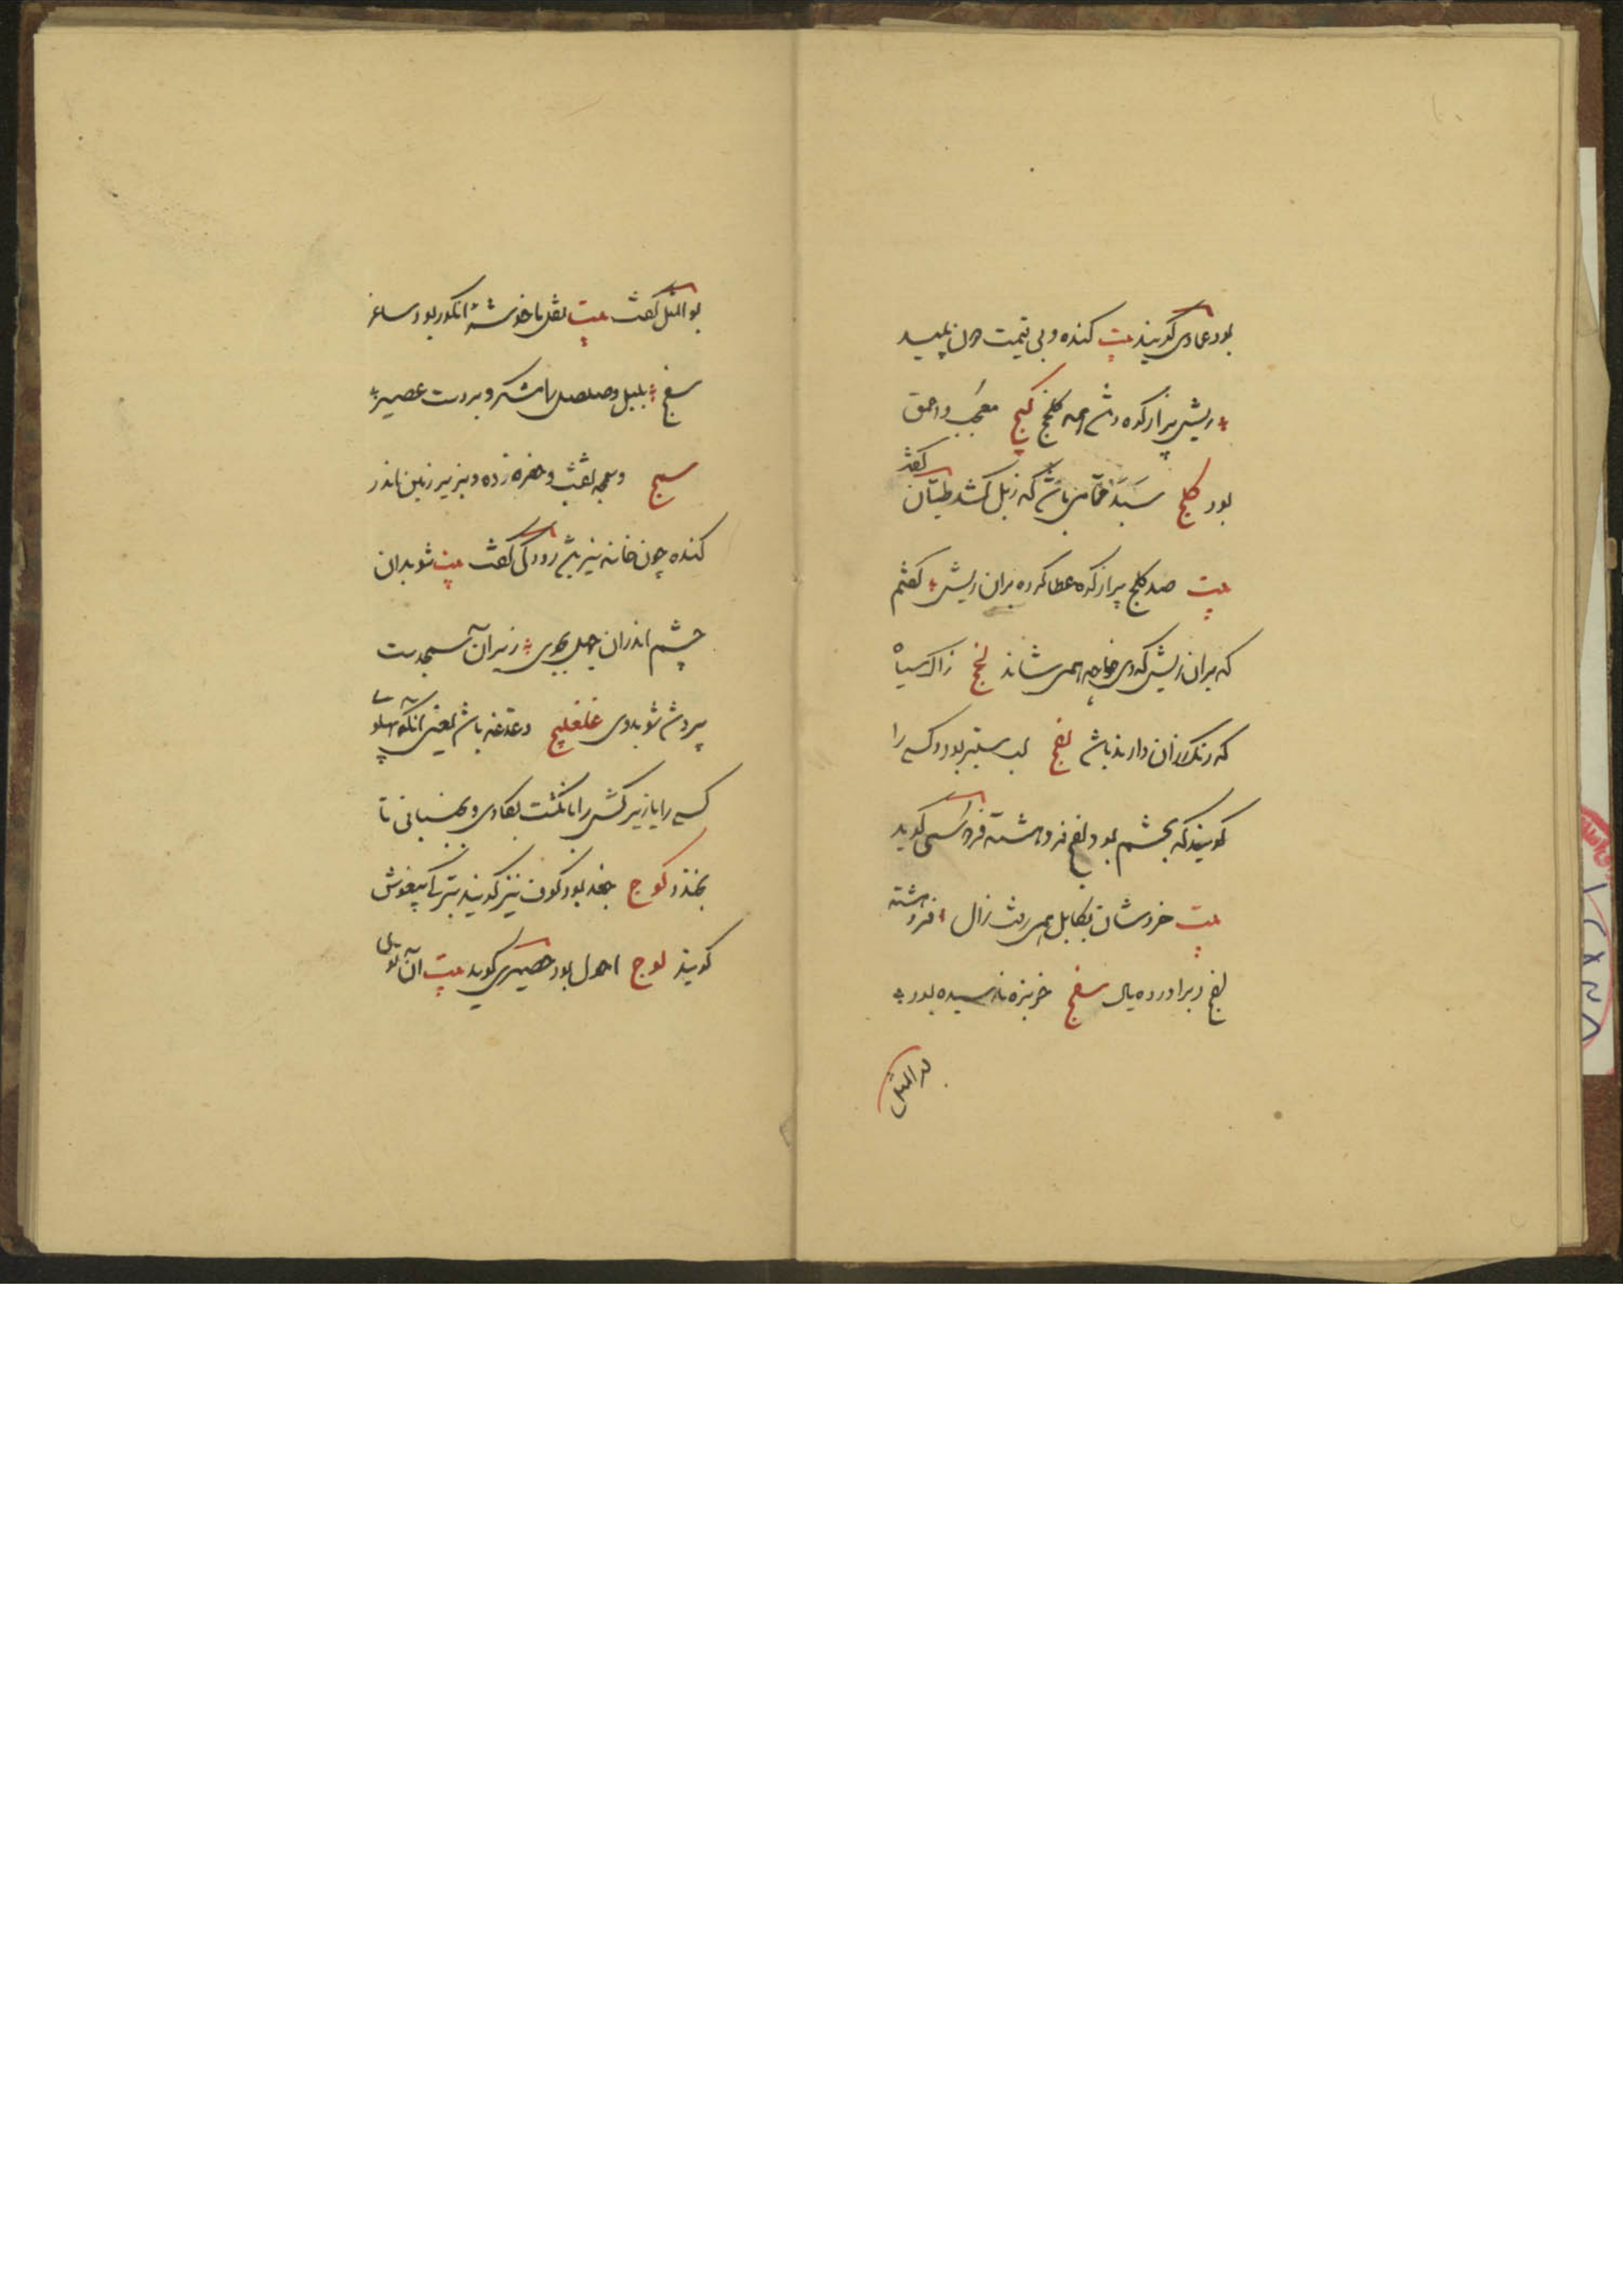 بود عماره گویند بیت کنده و بی قیمت دون پلید
ریش پر از کوه و تن همه کلخج کیج معجب و احمق
بود کلج سبد حمامی باشد که زبل کشد طیان گفت
بیت صد کلج پر از کوه عطا کرده بران ریش گفتم
که بران ریش که دی خواجه همی شاند لخج زاک سیاه
که رنگرزان دارند باشد لفج لب ستبر بود و کسی را
گویند که بخشم بود لفج فروهشته فردوسی گوید
بیت خروشان بکابل همی رفت زال فروهشته
لفج و براورده یال سفج خربزه نارسیده بود
بو المثل
بو المثل گفت بیت نقل ما خوشه انگور بود ساغر
سفج بلبل و صلصل رامشگر و بردست عصیر
سمج و سمجه نقب و حفره زده و بزیر زمین اندر
کنده چون خانه نیز باشد رودکی گفت بیت شو بدان
چشم اندران چهل بهری زیر آن سمجست
بیرون شو بدوی غلغلیج دغدغه باشد یعنی آنکه پهلو
کسی را یا زیر کشش را بانگشت بکاوی و بجنبانی تا
بخندد کوج جغد بود کوف نیز گویند بترکی بیغوش
گویند لوج احول بود حصیری گوید بیت آن توی